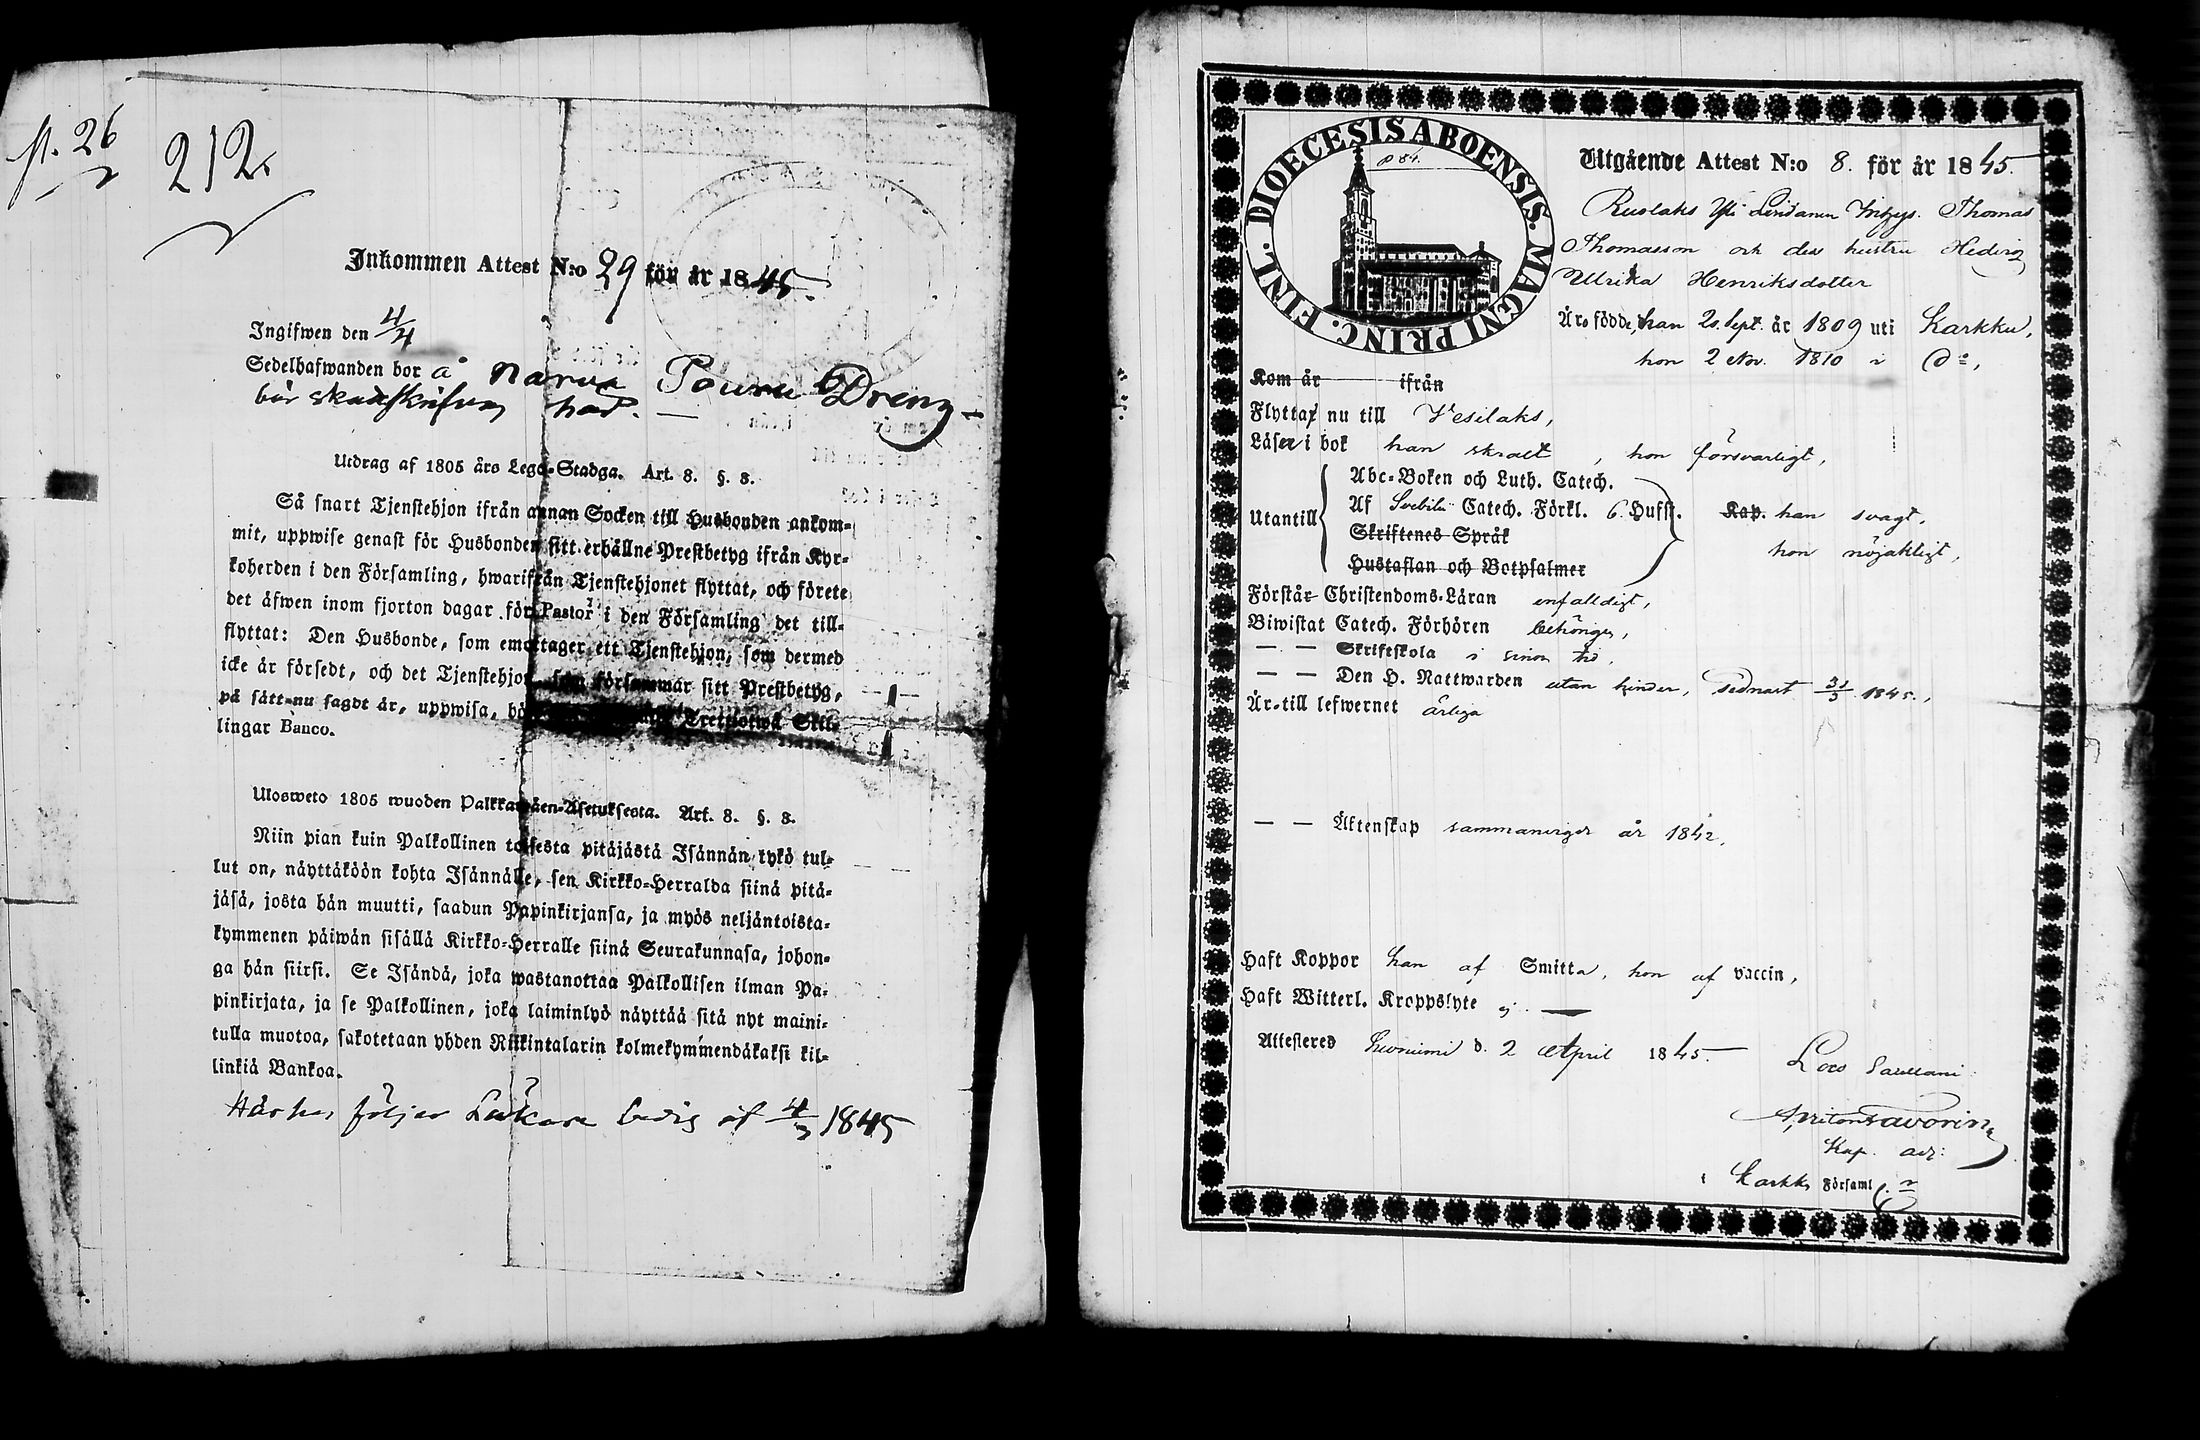 212.
Inkommen Attest N:o 29 för år 1845.
Ingifwen den 4/4
Sedelhafwanden bor å Narva Pouru Dreng
bör skattskrifvas
Utdrag af 1805 års Lego-Stadga. Art. 8. §. 8.
Så snart Tjenstehjon ifrån annan Socken till Husbonden ankom-
mit, uppwise genast för Husbonden sitt erhållne Prestbetyg ifrån Kyr-
koherden i den Församling, hwarifrån Tjenstehjonet flyttat, och förete
det äfwen inom fjorton dagar för Pastor i den Församling det till-
flyttat: Den Husbonde, som emottager ett Tjenstehjon, som dermed
icke är försedt, och det Tjenstehjon, som försummar sitt Prestbetyg,
på sätt-nu sagdt är, uppwisa, Tretiotwå Skil-
lingar Banco.
Ulosweto 1805 wuoden Palkkawäen-Asetuksesta. Art. 8. §. 8.
Niin pian kuin Palkollinen toisesta pitäjästä Isännän tykö tul-
lut on, näyttäköön kohta Isännälle, sen Kirkko-Herralda siinä pitä-
jäsä, josta hän muutti, saadun Papinkirjansa, ja myös neljäntoista-
kymmenen päiwän sisällä Kirkko-Herralle siinä Seurakunnasa, johon-
ga hän siirsi. Se Isändä, joka wastanottaa Palkollisen ilman Pa-
pinkirjata, ja se Palkollinen, joka laiminlyö näyttää sitä nyt maini-
tulla muotoa, sakotetaan yhden Riikintalarin kolmekymmendäkaksi kil-
linkiä Bankoa.
Härhos följer Läkare bevis af 4/3 1845
DIOECESIS ABOENSIS. MAGNI PRINC. FINL.
p 84.
Utgående Attest N:o 8. för år 1845.
Thomas
Thomasson och dess hustru Hedvig
Ulrika Henriksdotter
Äro födde, han 20 Sept. år 1809 uti Karkku,
hon 2 Nov. 1810 i Do,
Kom år ifrån
Flytta nu till Vesilaks,
Läser i bok han skralt, hon försvarligt,
Utantill
Abc-Boken och Luth. Catech.
Af Svebilii Catech. Förkl. 6. Hufst. Kap. han svagt,
Skriftenes Språk hon nöjaktigt,
Hustaflan och Botpsalmer
Förstår Christendoms-Läran enfaldigt,
Biwistat Catech. Förhören behörigen,
— — Skriftskola i sinom tid,
— — Den H. Nattwarden utan hinder, sednast 31/3 1845.,
Är till lefwernet ärliga
— — Äktenskap sammanvigde år 1842,
Haft Koppor han af Smitta, hon af vaccin,
Haft Witterl. Kroppslyte ej. —
Attesteres Keoniemi d. 2 April 1845.
Loco Pastoris
Kap. adj:
i Karkku Församl.